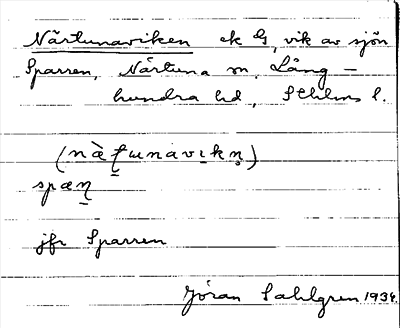 Närtunaviken ek G, vik av sjön
Sparren, Närtuna sn, Lång-
hundra hd, Sthlms l.
jfr Sparren
Jöran Sahlgren 1934